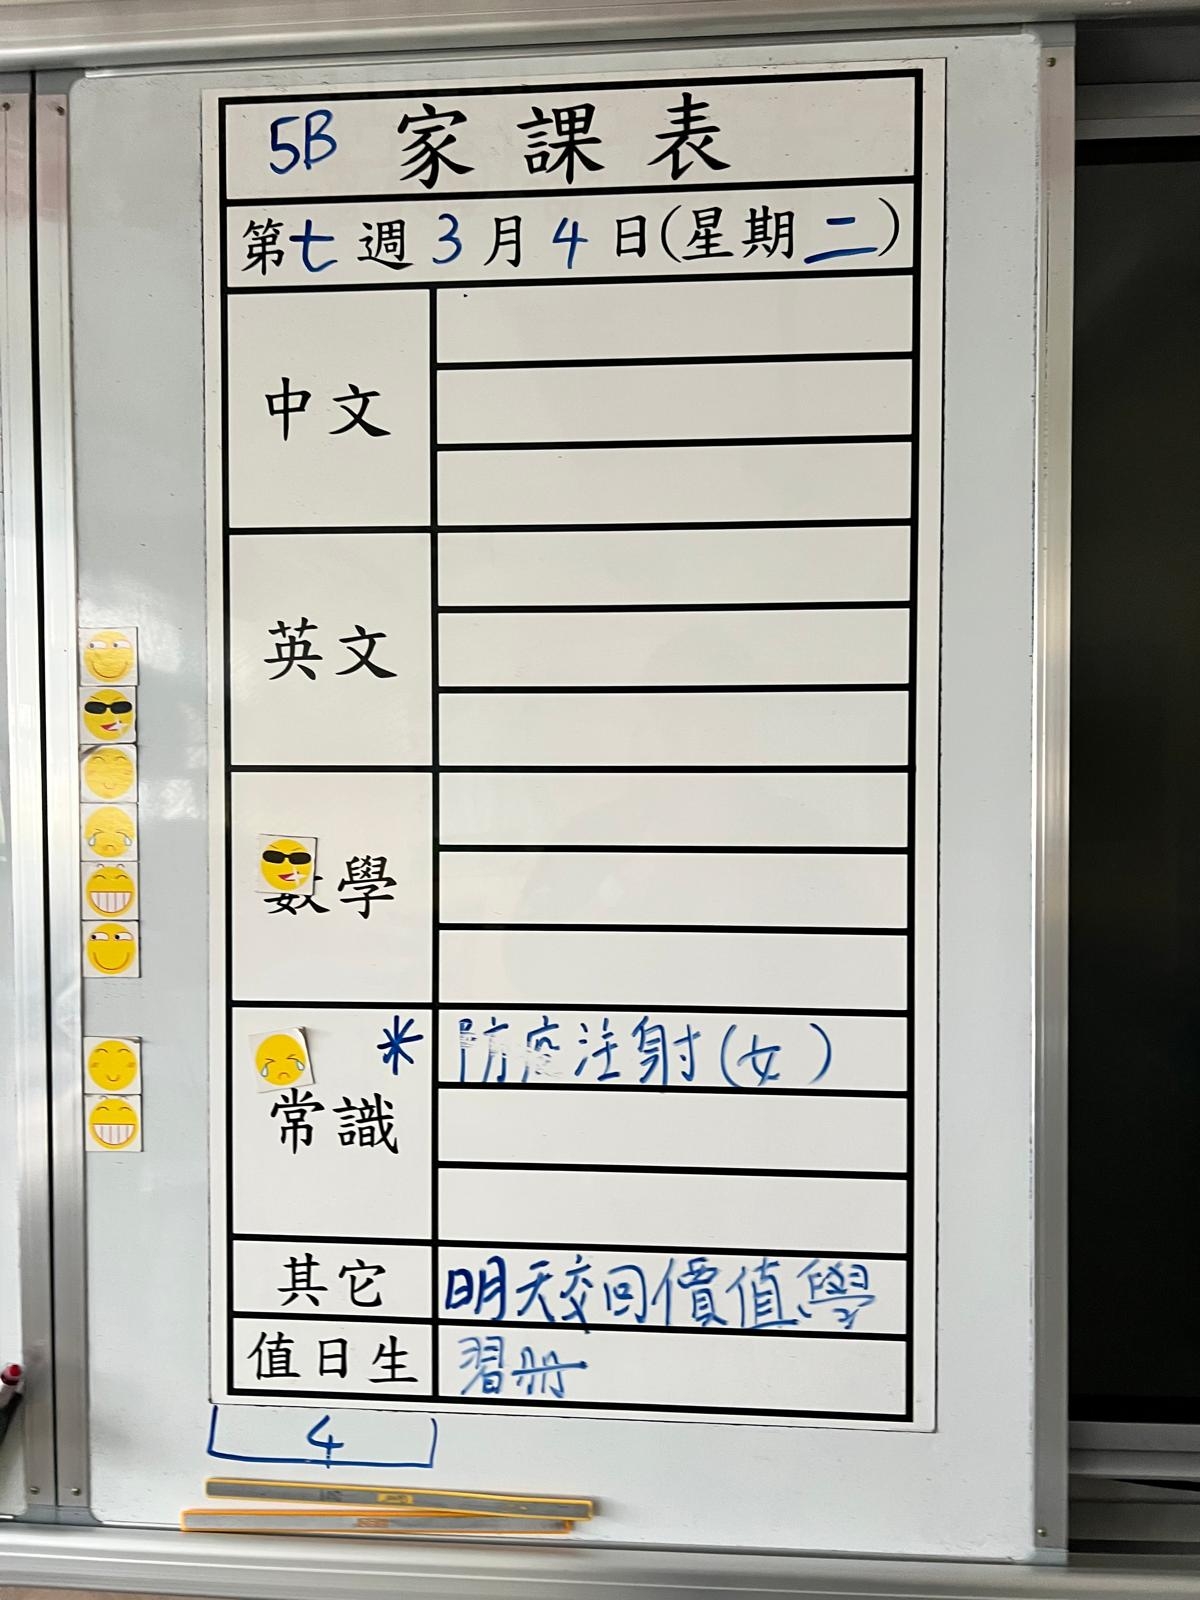 5B 家課表
第七週3月4日(星期二)
中文
英文
數學
* 防疫注射(女)
常識
其它 明天交回價值學
值日生 習冊
4